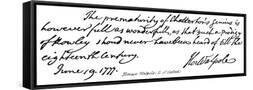 The prematurity of Chatterton's genius is
however full as wonderfull, as that such a prodigy
of Rowley should never have been heard of till the
eighteenth century.
June 19. 1777.
Hor Walpole